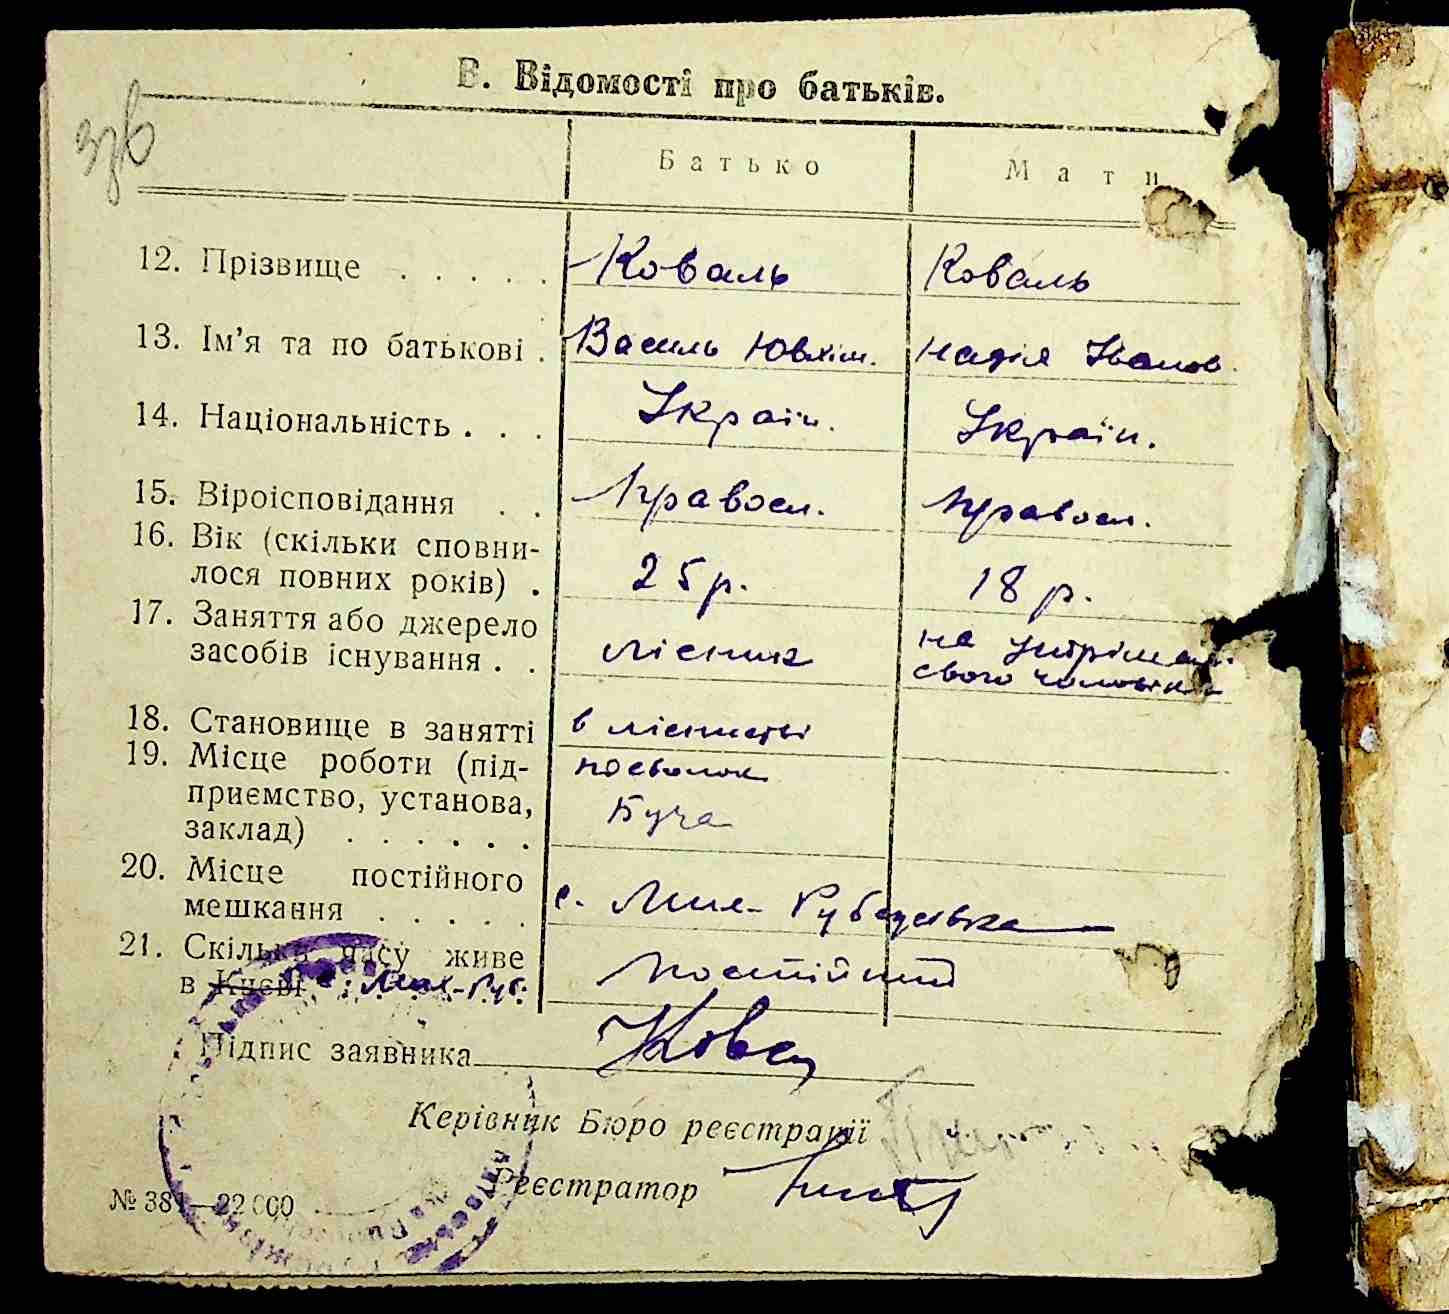 В. Відомості про батьків.
376
Батько Мати
12. Прізвище . . . . . Коваль Коваль
13. Ім'я та по батькові . Василь Ювхим. Надія Іванов.
14. Національність . . . Україн. Україн.
15. Віроісповідання . . Правосл. Правосл.
16. Вік (скільки сповни-
лося повних років) . 25 р. 18 р.
17. Заняття або джерело на утриман.
засобів існування . . лісник свого чоловіка
18. Становище в занятті в лісництві
19. Місце роботи (під- посьолок
приємство, установа, Буча
заклад) . . . . . .
20. Місце постійного
мешкання . . . . . с. Мих-Рубежівка
21. Скільки часу живе
в Києві с. Мих-Руб. постійний
Підпис заявника
Керівник Бюро реєстрації
Реєстратор
№ 381—22000